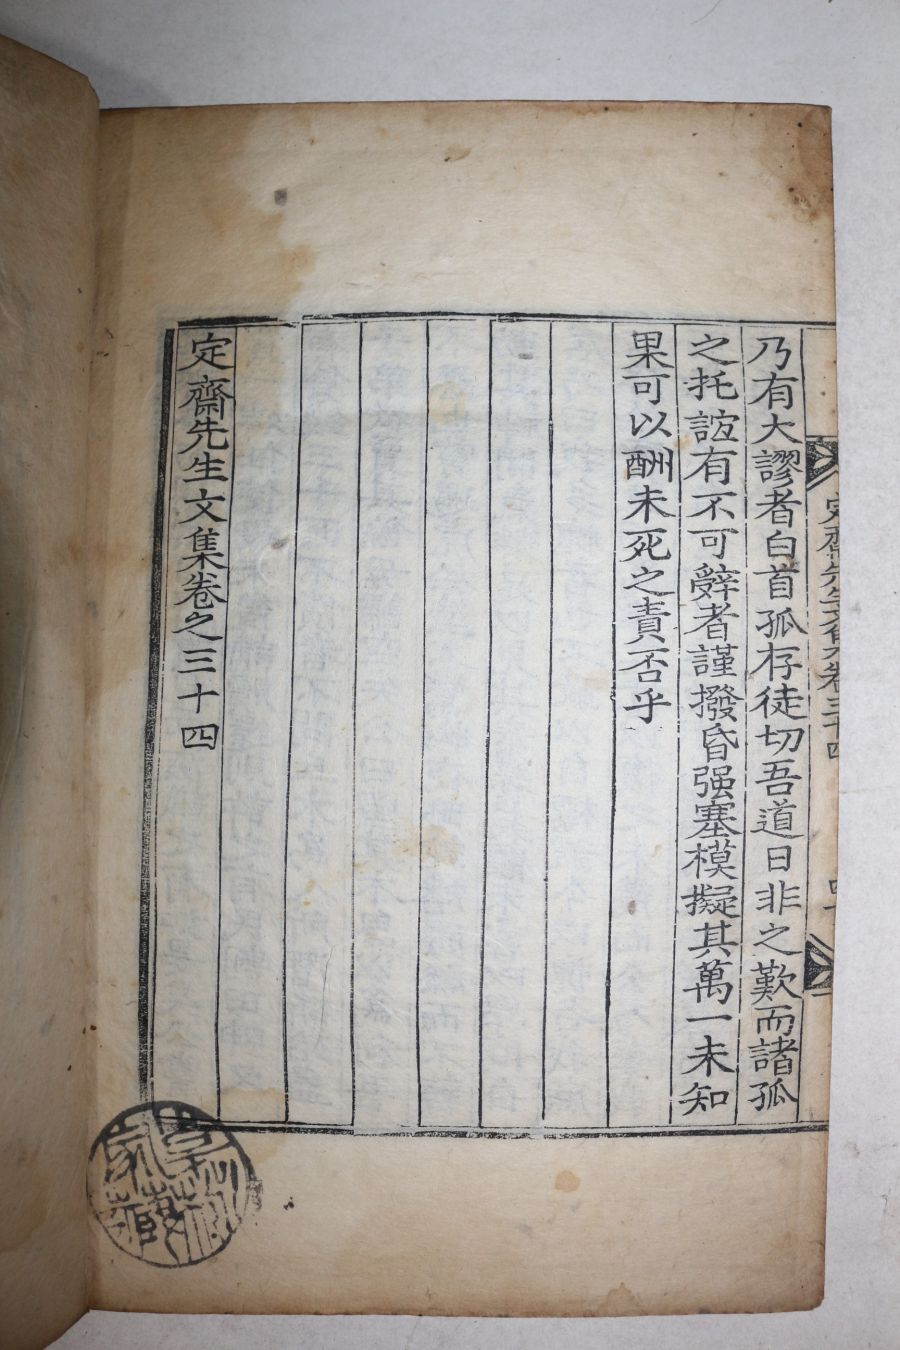 乃有大謬者白首孤存徒切吾道日非之歎而諸孤
之托誼有不可辭者謹撥昏强塞模擬其萬一未知
果可以酬未死之責否乎
定齋先生文集卷之三十四
定齋先生文集卷三十四